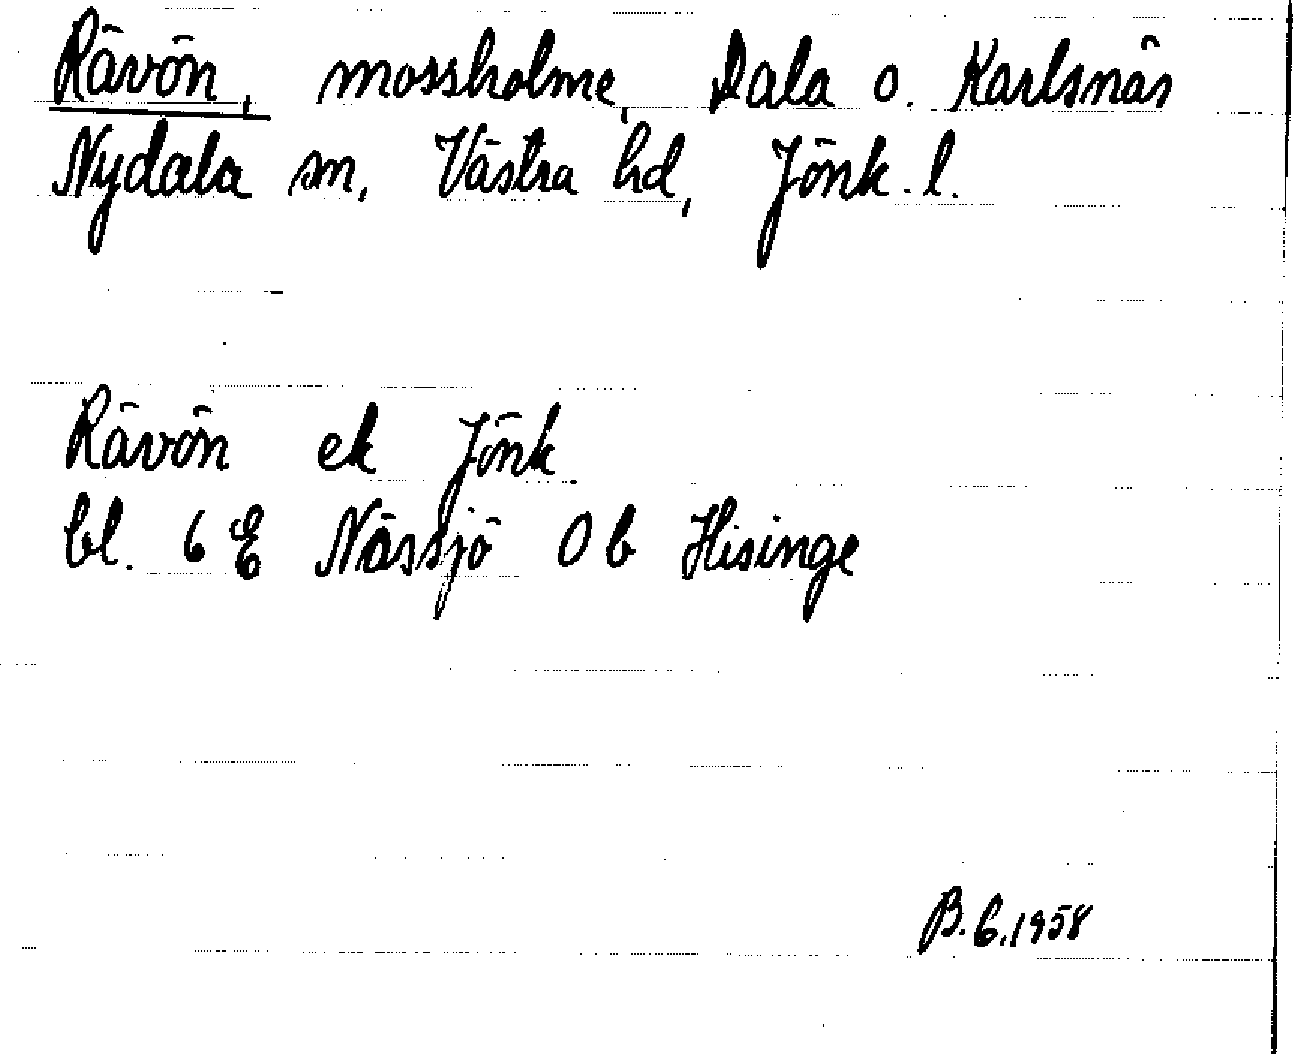 Rävön, mossholme, Dala o. Karlsnäs
Nydala sn, Västra hd, Jönk. l.
Rävön ek Jönk
bl. 6 E Nässjö 0 b Hisinge
B. G. 1958